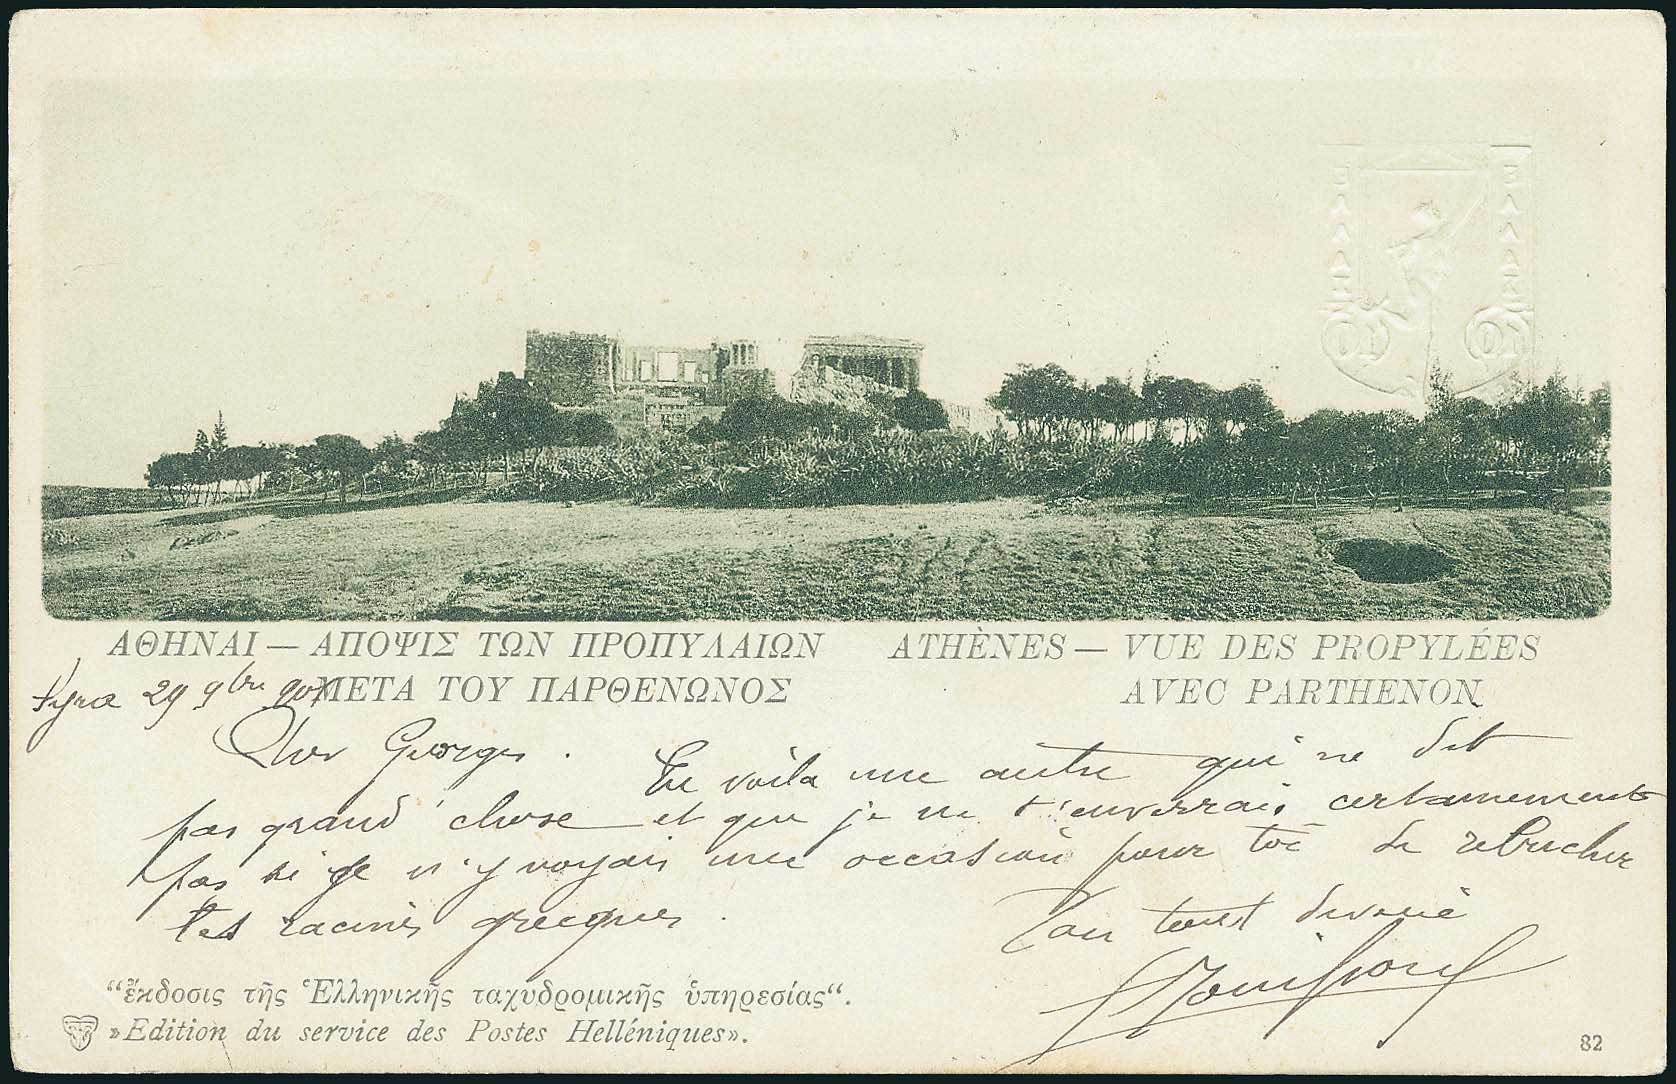 ΕΛΛΑΣ
ΕΛΛΑΣ
ΑΘΗΝΑΙ — ΑΠΟΨΙΣ ΤΩΝ ΠΡΟΠΥΛΑΙΩΝ
ΜΕΤΑ ΤΟΥ ΠΑΡΘΕΝΩΝΟΣ
ATHÈNES — VUE DES PROPYLÉES
AVEC PARTHENON
Syra 29 9bre
Georges. En voila une autre qui ne dit
pas grand'chose et que je ne t'enverrais certainement
pas si je n'y voyais une occasion pour toi de rebucher
tes racines grecques.
Ton tout dévoué
“ἔκδοσις τῆς Ἑλληνικῆς ταχυδρομικῆς ὑπηρεσίας“.
»Edition du service des Postes Helléniques».
82